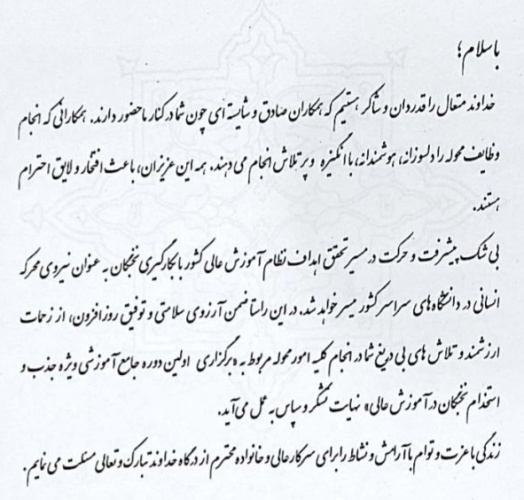 باسلام؛
خداوند متعال را قدردان و شاکر هستیم که همکاران صادق و شایسته‌ای چون شما در کنار ما حضور دارند. همکارانی که انجام
وظایف محوله را دلسوزانه، هوشمندانه، با انگیزه و پر تلاش انجام می دهند. همه این عزیزان، باعث افتخار و لایق احترام
هستند.
بی شک پیشرفت و حرکت در مسیر تحقق اهداف نظام آموزش عالی کشور با بکارگیری نخبگان به عنوان نیروی محرکه
انسانی در دانشگاه های سراسر کشور میسر خواهد شد. در این راستا ضمن آرزوی سلامتی و توفیق روز افزون، از زحمات
ارزشمند و تلاش های بی دریغ شما در انجام کلیه امور محوله مربوط به «برگزاری اولین دوره جامع آموزشی ویژه جذب و
استخدام نخبگان در آموزش عالی» نهایت تشکر و سپاس به عمل می آید.
زندگی با عزت و توام با آرامش و نشاط را برای سرکار عالی و خانواده محترم از درگاه خداوند تبارک و تعالی مسئلت می نمایم.